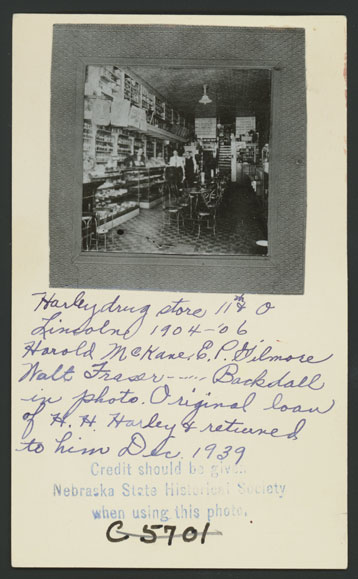 Harley drug store 11th & O
Lincoln 1904-06
Harold McKane, E. P. Gilmore
Walt Fraser - ---- Backdall
in photo. Original loan
of H. H. Harley & returned
to him Dec. 1939
Credit should be given
Nebraska State Historical Society
when using this photo.
C 5701